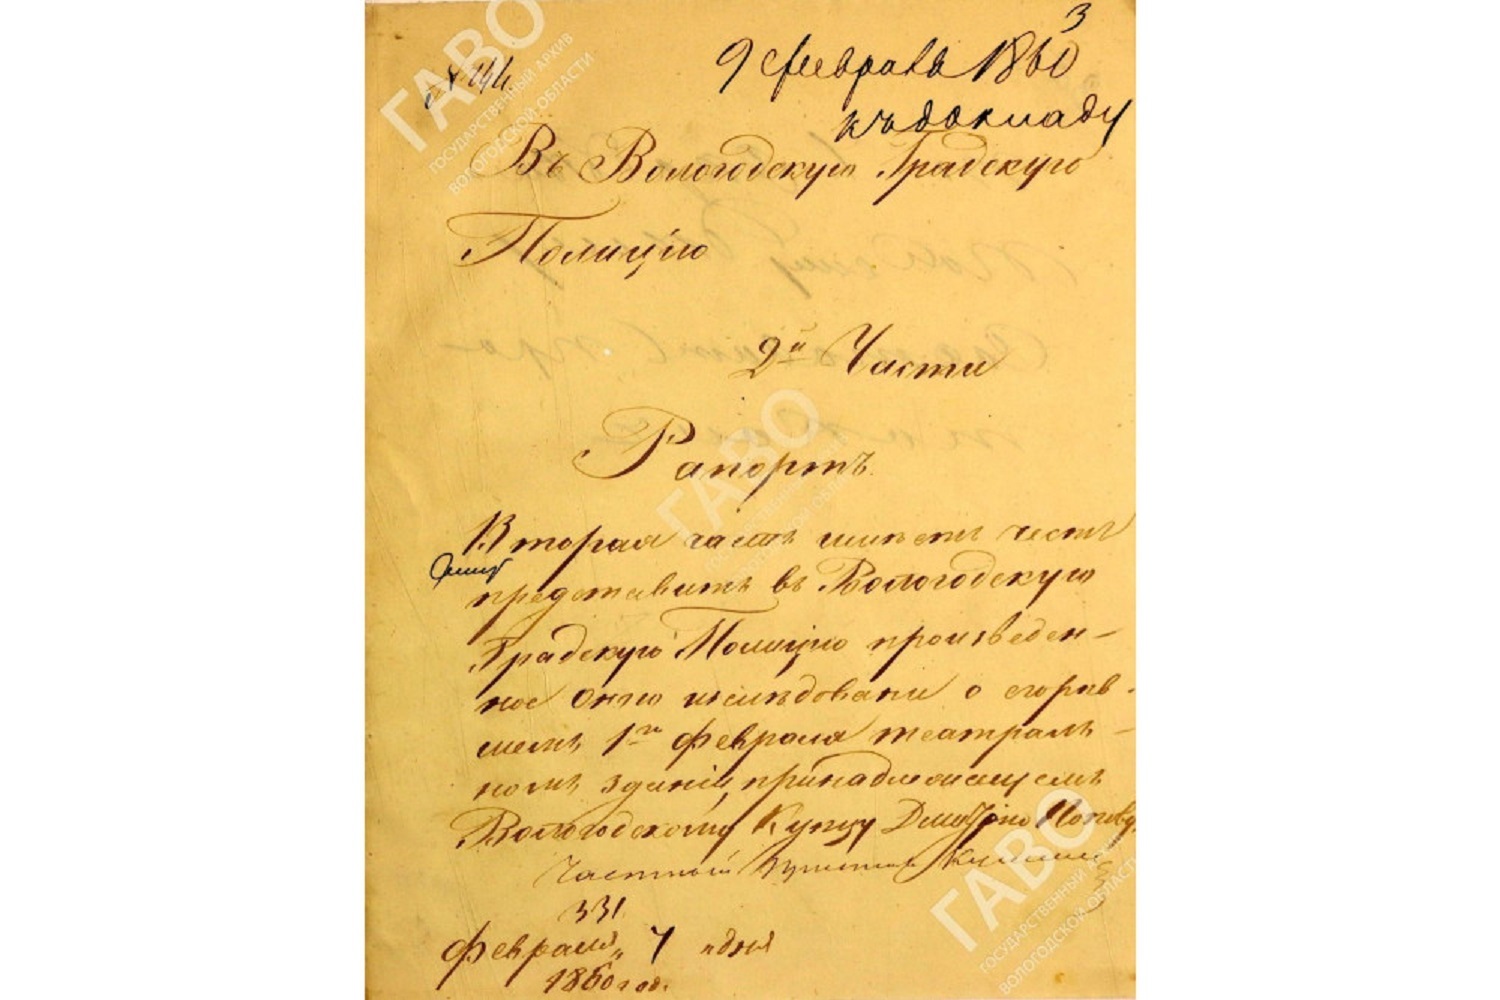 3
9 февраля 1860
къ докладу
№ 44
Въ Вологодскую Градскую
Полицію
2й Части
Рапортъ
Вторая часть имѣетъ честь
представить въ Вологодскую
Градскую Полицію произведен-
ное оною изслѣдованіе о сгорѣв-
шемъ 1го февраля театраль-
номъ зданіи, принадлежащемъ
Вологодскому Купцу Дмитрію Попову.
Частный Приставъ
331
Февраля „ 7 „ дня
1860 год.
ГАВО
ГОСУДАРСТВЕННЫЙ АРХИВ
ВОЛОГОДСКОЙ ОБЛАСТИ
ГАВО
ГАВО
ГОСУДАРСТВЕННЫЙ АРХИВ
ВОЛОГОДСКОЙ ОБЛАСТИ